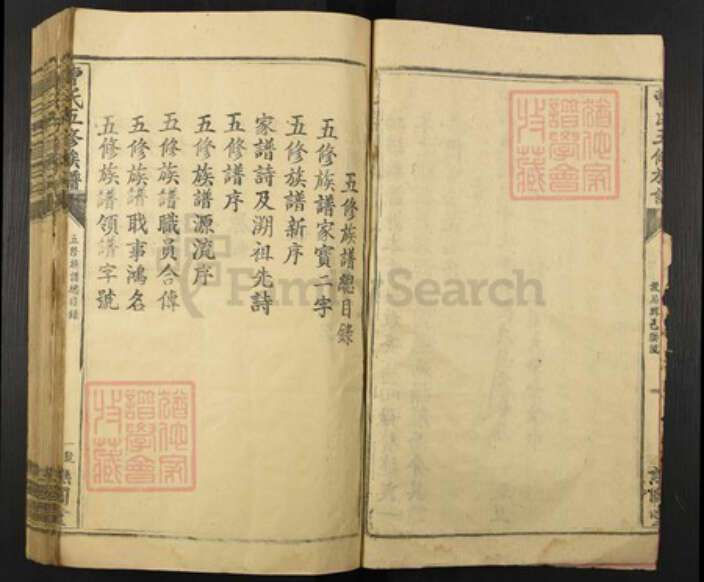 五修族譜總目錄
五修族譜家寶二字
五修族譜新序
家譜詩及溯祖先詩
五修譜序
五修族譜源流序
五修族譜職員合傳
五修族譜職事鴻名
五修族譜領譜字號
曾氏五修族譜
五修族譜總目錄
FamilySearch
譜學會
收藏
譜學會
收藏